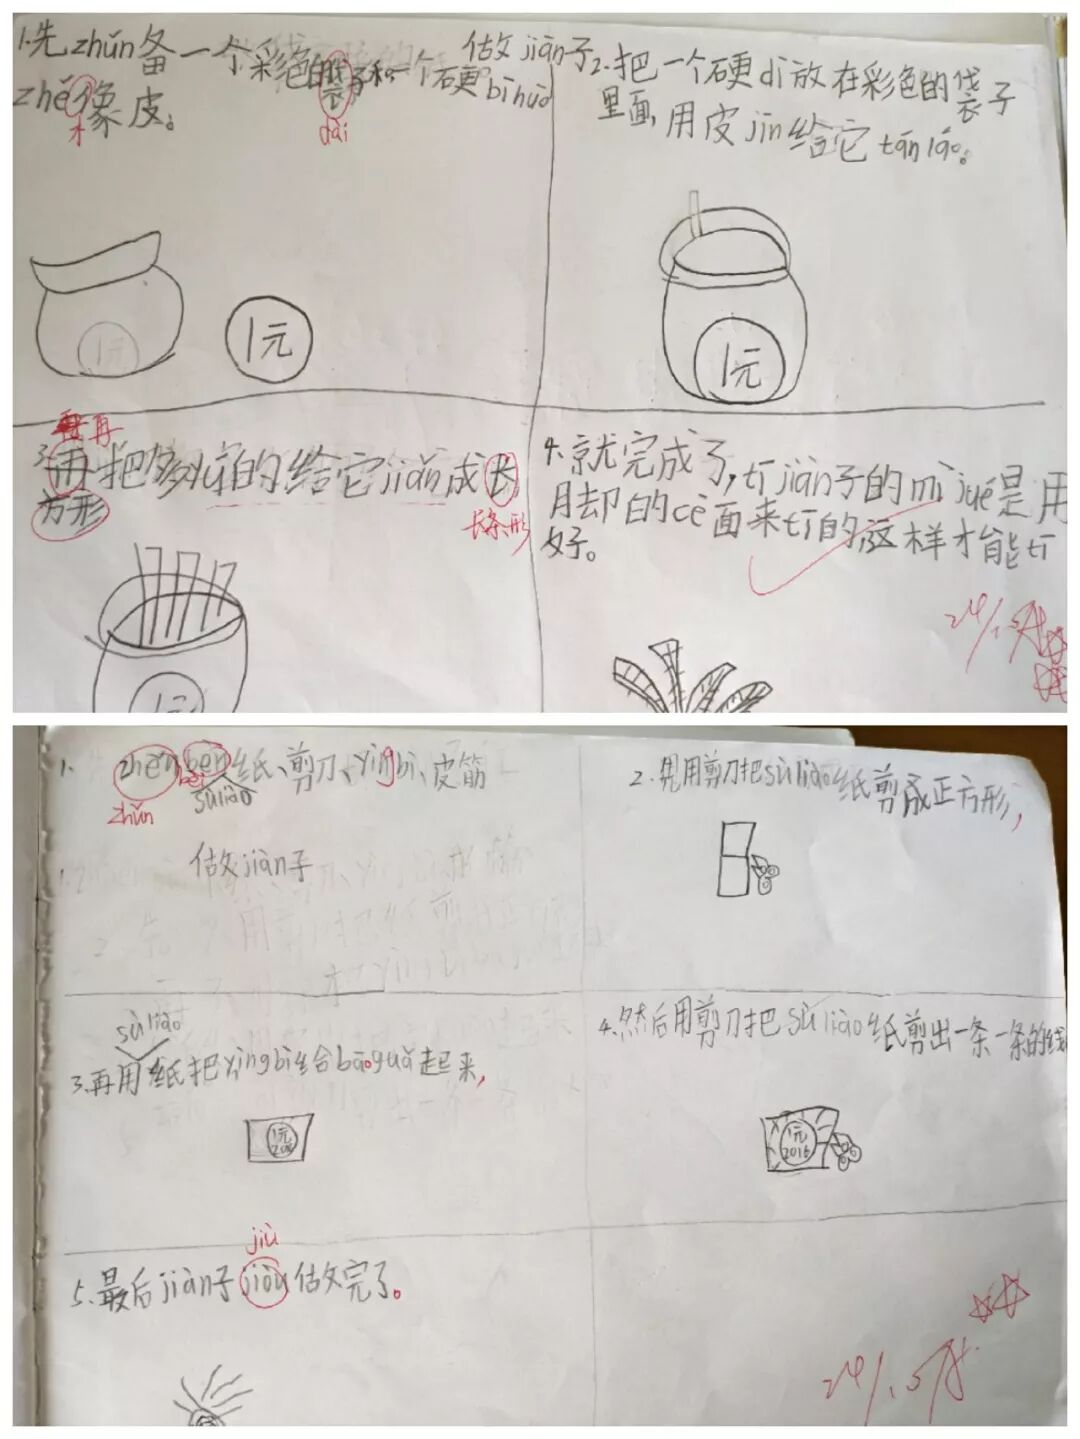 做 jiàn子
1.先zhǔn备一个彩色的袋子和一个硬bì huò
dài
zhě像皮。
木
1元
1元
2.把一个硬di放在彩色的袋子
里面,用皮jīn给它
1元
再
3.再把多yú的给它jiǎn成长
方形
长条形
1元
4.就完成了,tī jiàn子的mì jué是用
月却的cè面来tī的,这样才能tī
好。
24/5月
1. zhěn bèn纸、剪刀、yìngbì、皮筋
zhǔn bèi sùliào
做jiàn子
2.先用剪刀把sùliào纸剪成正方形,
sùliào
3.再用纸把yìngbì给bāoguǒ起来,
1元
4.然后用剪刀把sùliào纸剪出一条一条的线
1元
2016
jiù
5.最后jiàn子jiòu做完了。
24/5月